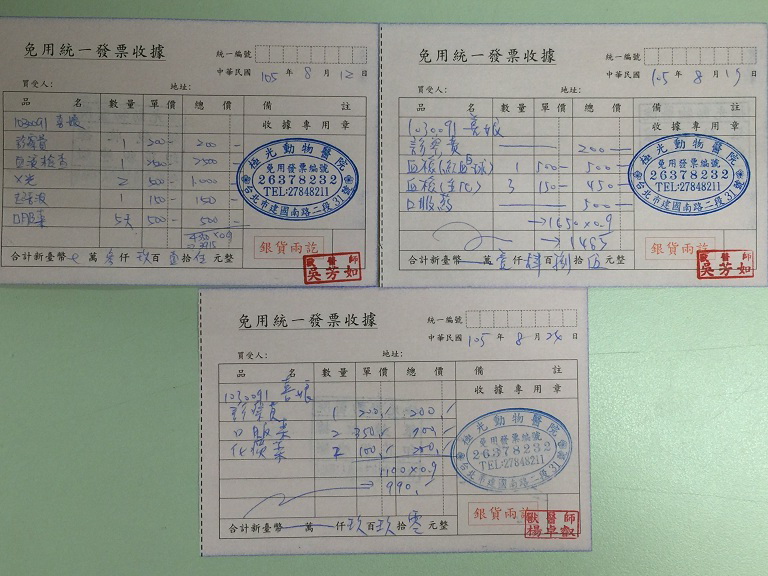 免用統一發票收據
統一編號
中華民國 105 年 8 月 12 日
買受人: 地址:
品 名 數量 單價 總價 備 註
1030091 喜娘
收據專用章
診察費 1 200- 200-
1 2500 2500-
X光 2 500- 1,000-
超音波 1 150- 150-
口服藥 5天 500- 500-
極光動物醫院
免用發票編號
26378232
TEL:27848211
台北市建國南路二段31號
銀貨兩訖
獸醫師
吳芳如
合計新臺幣 萬 參仟 玖百 壹拾 伍元整
免用統一發票收據
統一編號
中華民國 105 年 8 月 19 日
買受人: 地址:
品 名 數量 單價 總價 備 註
1030091 喜娘
收據專用章
診察費 200-
血檢(紅血球) 1 500- 500-
血檢(生化) 3 150- 450-
口服藥 500-
極光動物醫院
免用發票編號
26378232
TEL:27848211
台北市建國南路二段31號
銀貨兩訖
獸醫師
吳芳如
合計新臺幣 萬 壹仟 肆百 捌拾 伍元整
免用統一發票收據
統一編號
中華民國 105 年 8 月 24 日
買受人: 地址:
品 名 數量 單價 總價 備 註
1030091 喜娘
收據專用章
診察費 1 200,- 200,-
口服藥 2 350,- 700,-
化痰藥 2 100,- 200,-
1100×0.9
→ 990,-
極光動物醫院
免用發票編號
26378232
TEL:27848211
台北市建國南路二段31號
銀貨兩訖
獸醫師
楊卓叡
合計新臺幣 萬 仟 玖百 玖拾 零元整